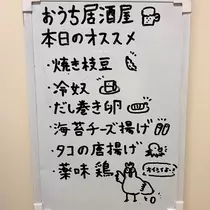 おうち居酒屋
本日のオススメ
・焼き枝豆
・冷奴
・だし巻き卵
・海苔チーズ揚げ
・タコの唐揚げ
・薬味鶏
オイシイよー!